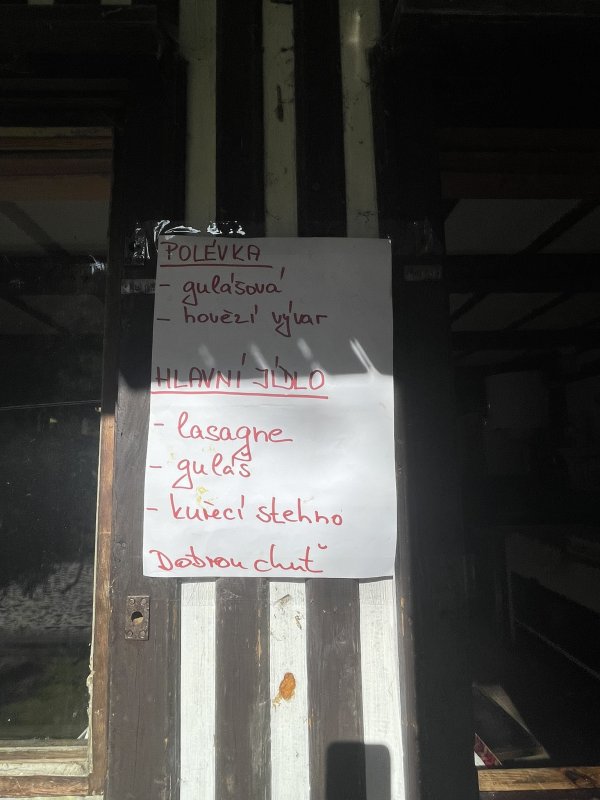 POLÉVKA
- gulášová
- hovězí vývar
HLAVNÍ JÍDLO
- lasagne
- guláš
- kuřecí stehno
Dobrou chuť